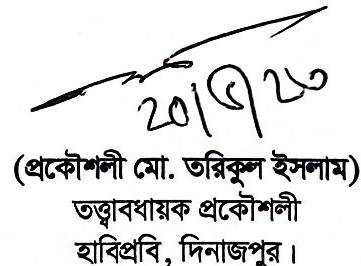 (প্রকৌশলী মো. তরিকুল ইসলাম)
তত্ত্বাবধায়ক প্রকৌশলী
হাবিপ্রবি, দিনাজপুর।